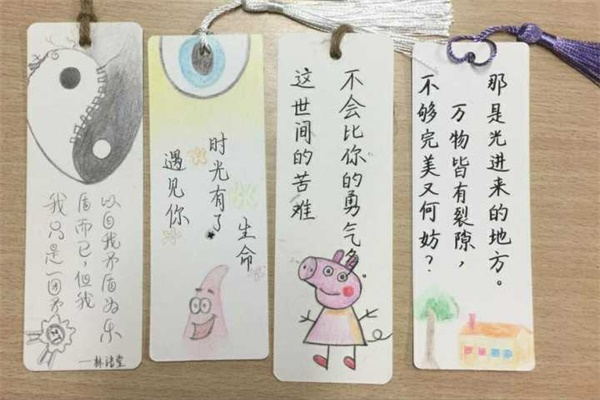 我只是一团矛
盾而已，但我
以自我矛盾为乐
——林语堂
遇见你
时光有了
生命
这世间的苦难
不会比你的勇气多。
不够完美又何妨？
万物皆有裂隙，
那是光进来的地方。